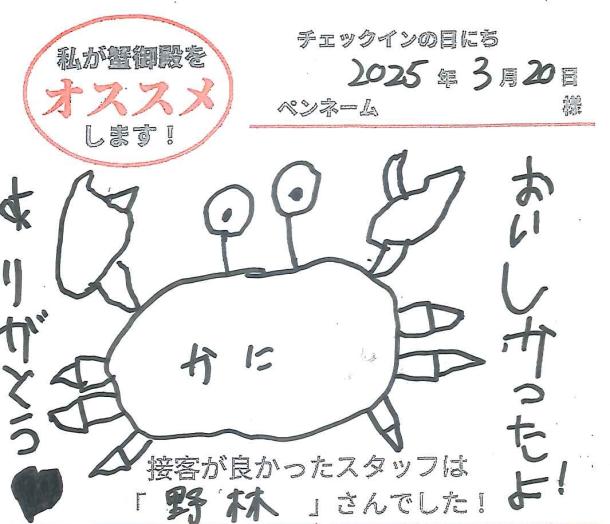 私が蟹御殿を
オススメ
します！
チェックインの日にち
2025年3月20日
ペンネーム 様
おいしかったよ!
ありがとう♥
かに
接客が良かったスタッフは
「野林」さんでした！